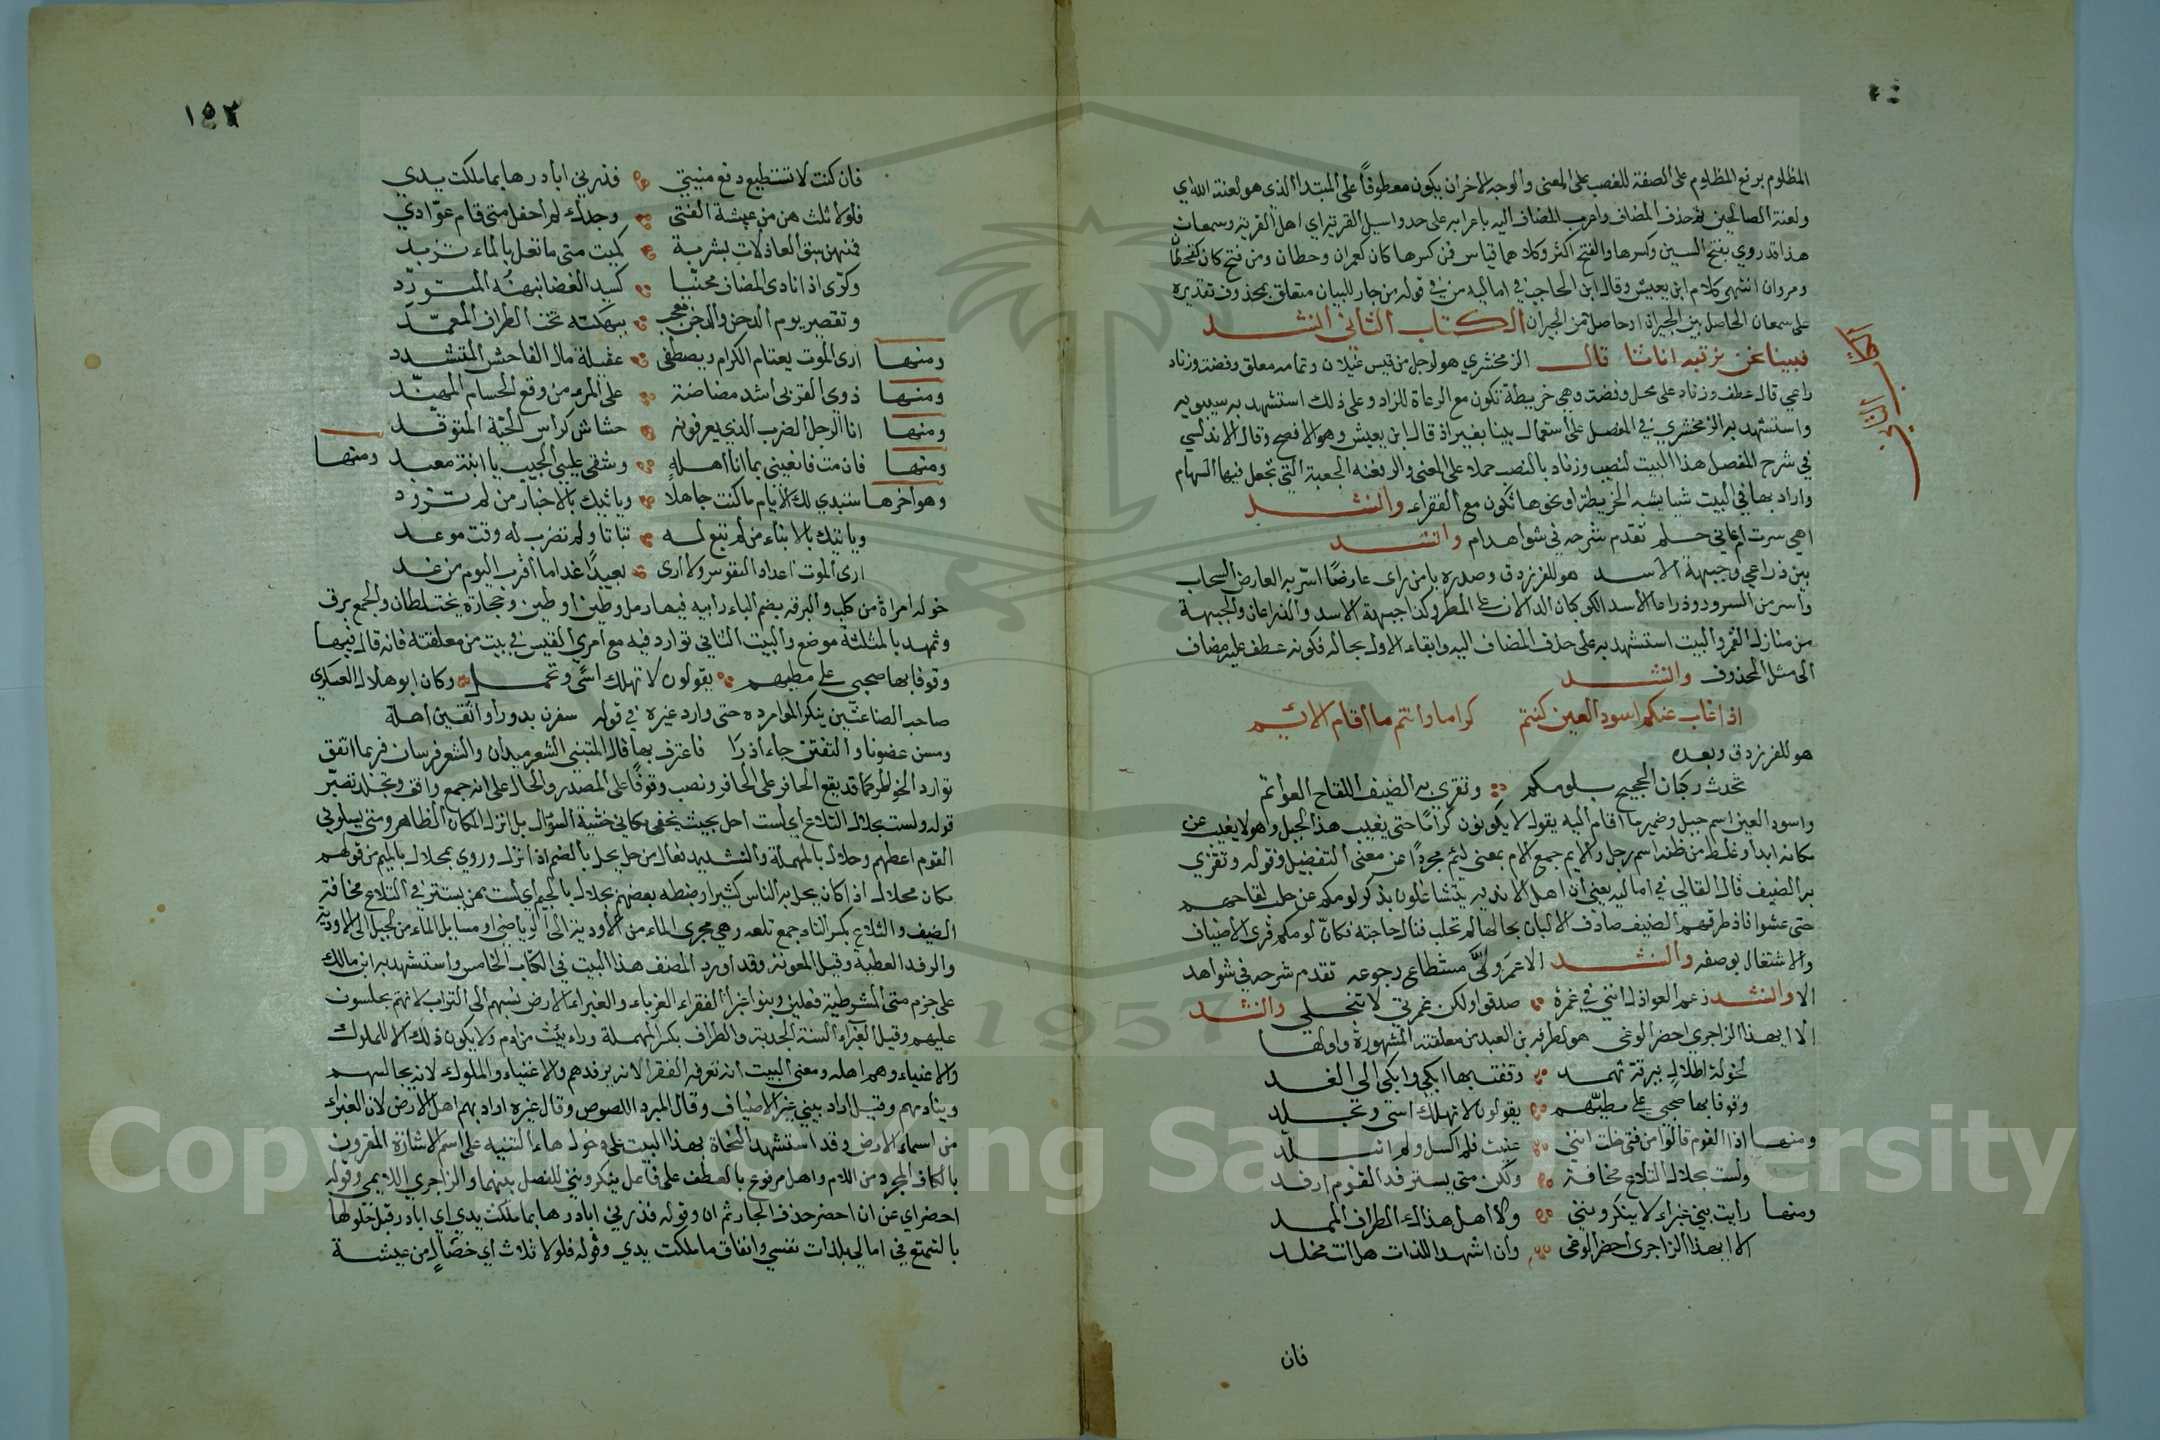 المظلوم برفع المظلوم على الصفة للغصب على المعنى والوجه الاخر ان يكون معطوفاً على المبتدا الذي هو لعنة الله اي
ولعنة الصالحين ثم حذف المضاف واعرب المضاف اليه باعرابه على حد واسيل القرية اي اهل القرية وسمعان
هذا قد روي بفتح السين وكسرها والفتح اكثر وكلاهما قياس فمن كسرها كان كعمران وحطان ومن فتح كان كقحطان
ومروان انتهى كلام ابن يعيش وقال ابن الحاجب في اماليه من في قوله من جار للبيان متعلق بمحذوف تقديره
على سمعان الحاصل بين الجيران او حاصل من الجيران الكتاب الثاني انشد
فبينا نحن نرقبه اتانا قال الزمخشري هو لرجل من قيس غيلان وتمامه معلق وفضة وزناد
راعي قال عطف وزناد على محل وفضة وهي خريطة تكون مع الرعاة للزاد وعلى ذلك استشهد به سيبويه
واستشهد به الزمخشري في المفصل على استعمال بينا بغير اذ قال ابن يعيش وهو الافصح وقال الاندلسي
في شرح المفصل هذا البيت لنصيب وزناد بالنصب حملا على المعنى والوفضة الجعبة التي تجعل فيها السهام
واراد بها في البيت شيا يشبه الخريطة او نحوها تكون مع الفقراء وانشد
اهي سرت ام عاني حلم تقدم شرحه في شواهد ام وانشد
بين ذراعي وجبهة الاسد هو للفرزدق وصدره يا من راى عارضًا اسر به العارض السحاب
واسر من السرور وذراعا الاسد الكوكبان الدالان على المطر وكذا جبهة الاسد والذراعان والجبهة
من منازل القمر والبيت استشهد به على حذف المضاف اليه وابقاء الاول بحاله فكونه عطف عليه مضاف
الى مثل المحذوف وانشد
اذا غاب عنكم اسود العين كنتم كراما وانتم ما اقام الائم
هو للفرزدق وبعده
تحدث ركبان الحجيج بلومكم وتقري به الضيف اللقاح العواتم
واسود العين اسم جبل وضمير ما اقام اليه يقول لا يكونون كرامًا حتى يغيب هذا الجبل وهو لا يغيب عن
مكانه ابدا وغلط من ظنه اسم رجل والايم جمع الام بمعنى لئم مجردًا عن معنى التفضيل وقوله وتقري
به الضيف قال القالي في اماليه يعني ان اهل الانديه يتشاغلون بذكر لومكم عن حلب لقاحهم
حتى عشوا فاذ طرقهم الضيف صادف الالبان بحالها لم تحلب فنال حاجته فكان لومكم قرى الاضياف
والاشتغال بوصفه وانشد الا عمر ولى مستطاع رجوعه تقدم شرحه في شواهد
الا وانشد زعم العواذل انني في غمرة صدقوا ولكن غمرتي لا تنجلي وانشد
الا ايهذا الزاجري احضر الوغى هو لطرفه بن العبد من معلقته المشهورة واولها
لخولة اطلال ببرقة ثهمد وقفت بها ابكي وابكي الى الغد
وقوفا بها صحبي على مطيهم يقولون لا تهلك اسى وتجلد
ومنها اذا القوم قالوا من فتى خلت انني عنيت فلم اكسل ولم اتبلد
ولست بحلال التلاع مخافة ولكن متى يسترفد القوم ارفد
ومنها رايت بني غبراء لا ينكرونني ولا اهل هذاك الطراف الممدد
الا ايهذا الزاجري احضر الوغى وان اشهد اللذات هل انت مخلد
فان
الكتاب الثاني
١٥٢
فان كنت لا تستطيع دفع منيتي فذرني ابادرها بما ملكت يدي
فلولا ثلث هن من عيشة الفتى وجدك لم احفل متى قام عوادي
فمنهن سبق العاذلات بشربة كميت متى ما تعل بالماء تزبد
وكري اذا نادى المضاف محنبا كسيد الغضا نبهته المتورد
وتقصير يوم الدجن والدجن معجب ببهكنة تحت الطراف المعمد
ومنها ارى الموت يعتام الكرام ويصطفى عقيلة مال الفاحش المتشدد
ومنها ذوي القربى اشد مضاضة على المرء من وقع الحسام المهند
ومنها انا الرجل الضرب الذي يعرفونه حشاش كراس الحية المتوقد
ومنها فان مت فانعيني بما انا اهله وشقي على الجيب يا ابنة معبد ومنها
وهو اخرها ستبدي لك الايام ما كنت جاهلا وياتيك بالاخبار من لم تزود
وياتيك بالانباء من لم تبع له بتاتا ولم تضرب له وقت موعد
ارى الموت اعداد النفوس ولا ارى بعيدًا غدا ما اقرب اليوم من غد
خوله امراة من كلب والبرقه بضم الباء رابيه فيها رمل وطين او طين وحجارة يختلطان والجمع برق
وثهمد بالمثلثة موضع والبيت الثاني توارد فيه مع امري القيس في بيت من معلقته فانه قال فيها
وقوفا بها صحبي على مطيهم يقولون لا تهلك اسًى وتجمل وكان ابو هلال العسكري
صاحب الصناعتين ينكر المواردة حتى وارد غيره في قوله سفرن بدورا وانتقبن اهلة
ومسن غصونا والتفتن جاءاذرا فاعترف بها قال المتنبي الشعر ميدان والشعر فرسان فربما اتفق
توارد الخواطر كما قد يقع الحافر على الحافر ونصب وقوفًا على المصدر والحال على انه جمع واقف وتجلد تصبر
قوله ولست بحلال التلاع اي لست احل بحيث يخفى مكاني خشية السؤال بل انزل المكان الظاهر ومتى يسلوني
القوم اعطهم وحلال بالمهملة والتشديد فعال من حل يحل بالضم اذا نزل وروي بمحلال بالميم من قولهم
مكان محلال اذا كان يحل به الناس كثيرا وضبطه بعضهم بجلال بالجيم اي لست ممن يستتر في التلاع مخافة
الضيف والتلاع بكسر التاء جمع تلعه وهي مجرى الماء من الاودية الى الرياض او مسايل الماء من الجبل الى الاودية
والرفد العطية وقيل المعونة وقد اورد المصنف هذا البيت في الكتاب الخامس واستشهد به ابن مالك
على جزم متى الشرطية فعلين وبنو غبرا الفقراء الغرباء والغبرا الارض نسبهم الى التراب لانهم يجلسون
عليهم وقيل الغبراء السنة الجدبة والطراف بكسر المهملة وراء بيت من ادم ولا يكون ذلك الا للملوك
والاغنياء وهم اهله ومعنى البيت انه تعرفه الفقرا لانه يرفدهم والاغنياء والملوك لانه يجالسهم
وينادمهم وقيل اراد ببني غبرا الاضياف وقال المبرد اللصوص وقال غيره اراد بهم اهل الارض لان الغبراء
من اسماء الارض وقد استشهد النحاة بهذا البيت على دخول هاء التنبيه على اسم الاشارة المقرون
بالكاف المجرد من اللام واهل مرفوع بالعطف على فاعل ينكرونني للفصل بينهما والزاجري اللايمي وقوله
احضر اي عن ان احضر حذف الجار ثم ان وقوله فذرني ابادرها بما ملكت يدي اي ابادر قبل حلولها
بالتمتع في امالي بلذات نفسي وانفاق ما ملكت يدي وقوله فلولا ثلاث اي خصال من عيشة